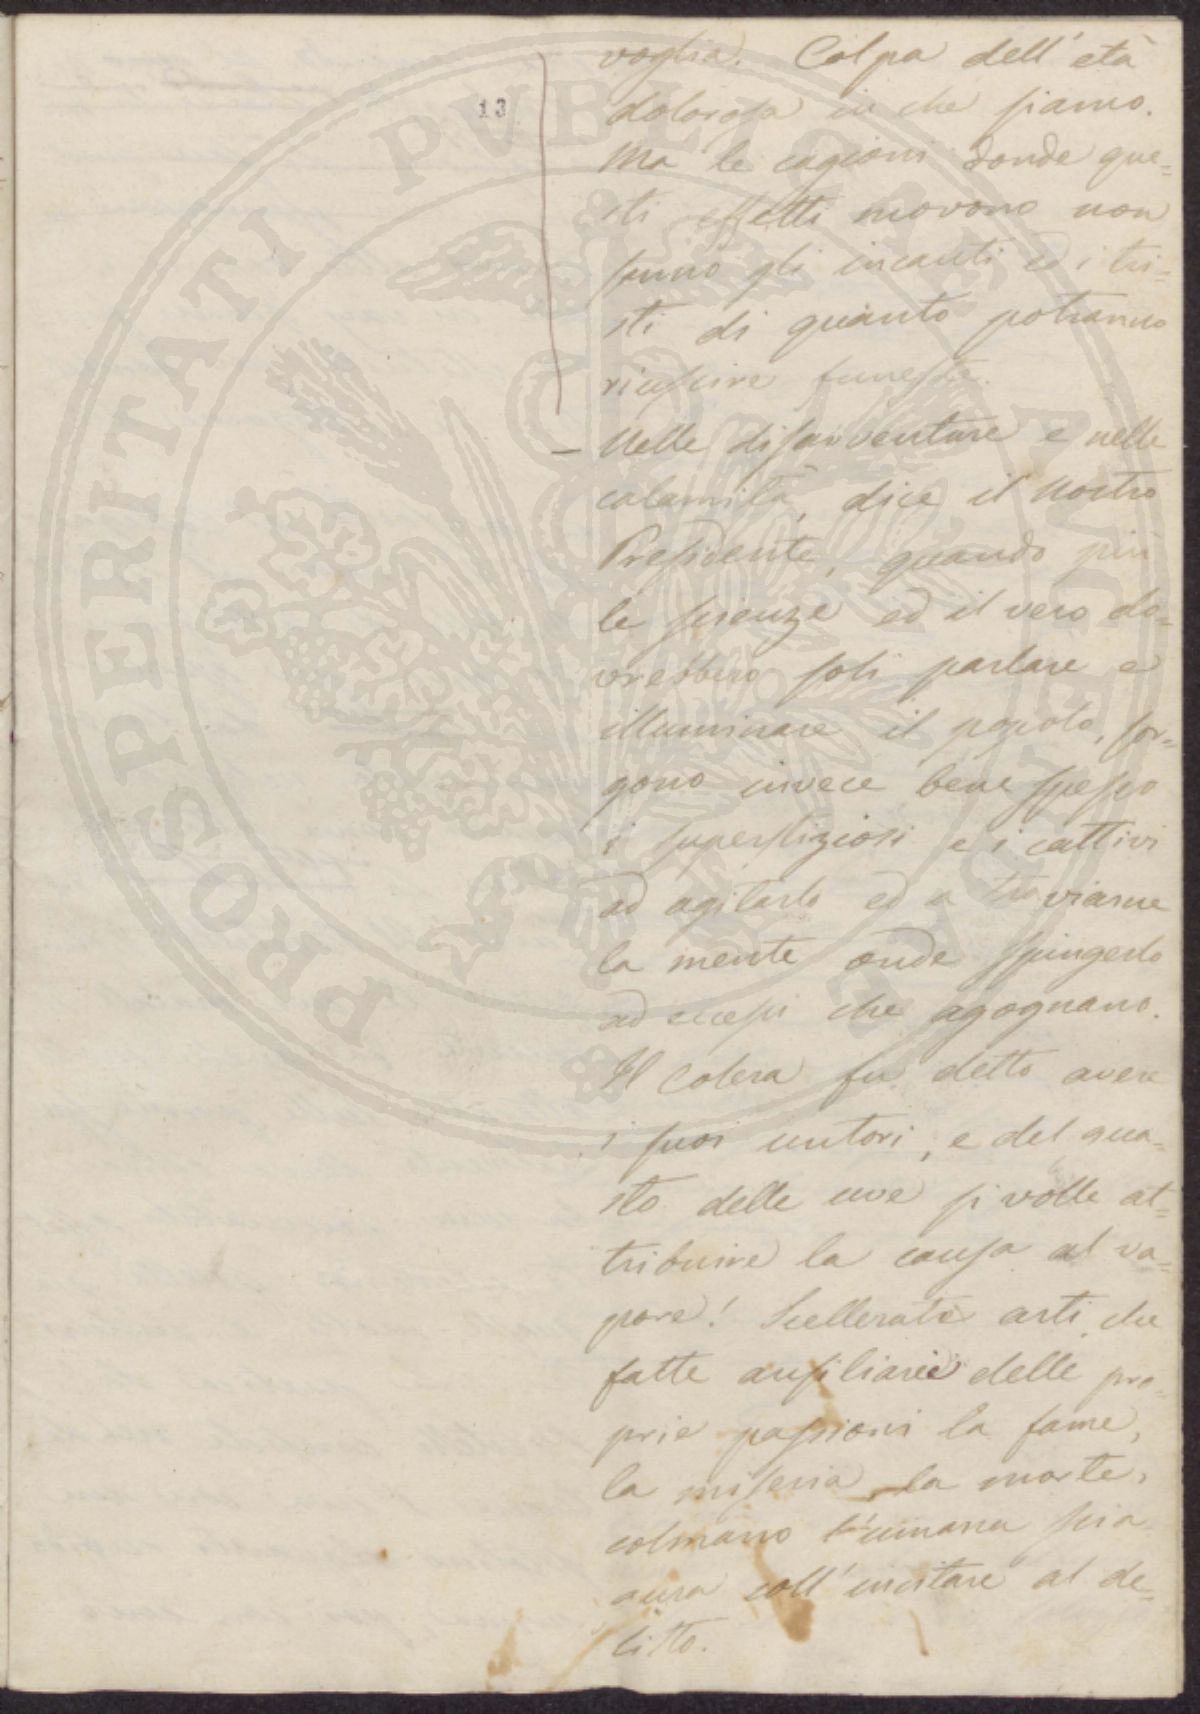 13
voglia. Colpa dell'età
dolorosa in che siamo.
Ma le cagioni donde que=
sti effetti movono non
sanno gli incauti ed i tri=
sti di quanto potranno
riuscire funeste.
– Nelle disavventure e nelle
calamità, dice il Nostro
Presidente, quando più
le scienze ed il vero do=
vrebbero soli parlare e
illuminare il popolo, sor=
gono invece bene spesso
i superstiziosi e i cattivi
ad agitarlo ed a traviarne
la mente onde spingerlo
ad eccessi che agognano.
Il Colera fu detto avere
i suoi untori, e del gua=
sto delle uve si volle at=
tribuire la causa al va=
pore! Scellerate arti, che
fatte ausiliarie delle pro=
prie passioni la fame,
la miseria, la morte,
colmano l'umana scia
aura coll'incitare al de=
litto.
PROSPERITATI PVBLICAE AVGENDAE